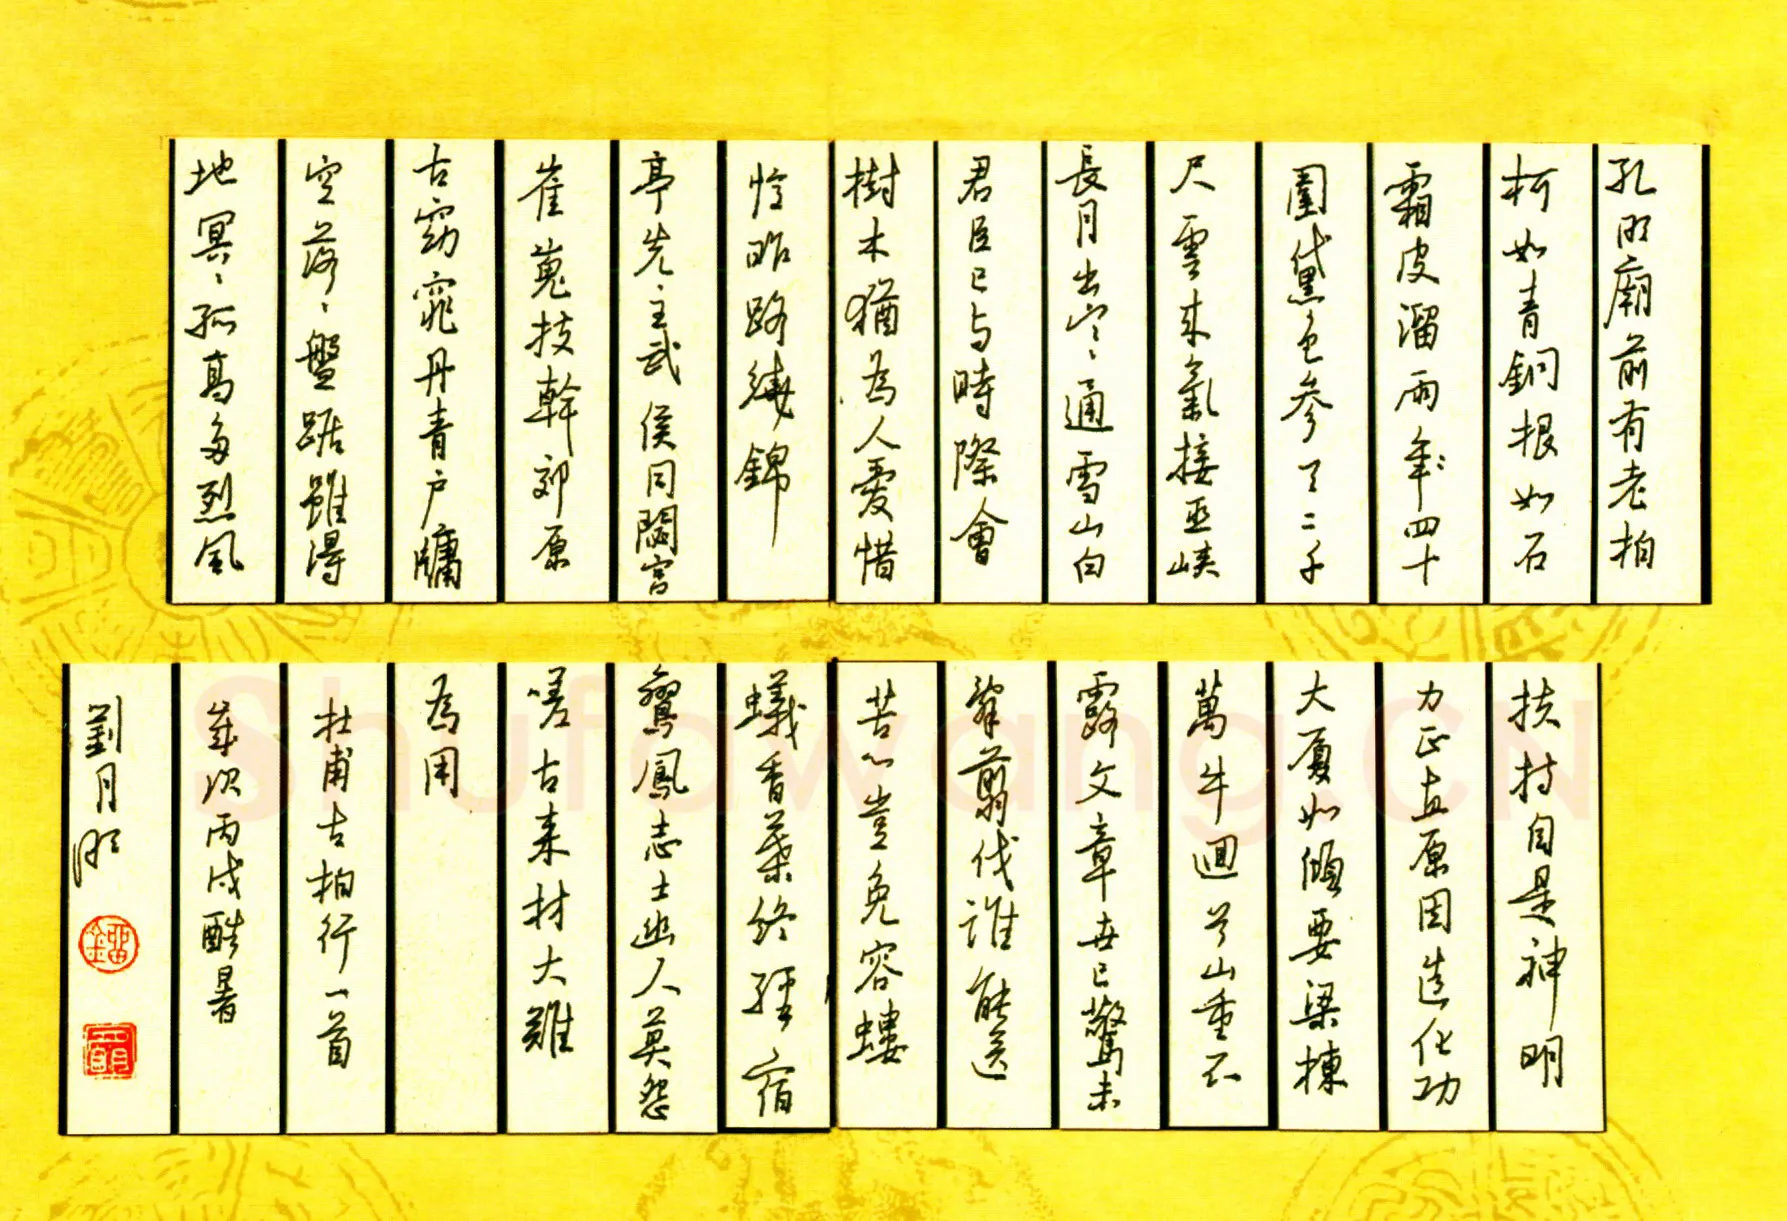 孔明廟前有老柏
柯如青銅根如石
霜皮溜雨年〻四十
圍黛色參天二千
尺雲来氣接巫峽
長月出寒〻通雪山白
君臣已与時際會
樹木猶為人愛惜
憶昨路繞錦
亭先〻主武侯同閟宮
崔嵬枝幹郊原
古窈窕丹青户牖
空落〻盤踞雖得
地冥〻孤高多烈風
扶持自是神明
力正直原因造化功
大廈如傾要梁棟
萬牛迴首山重不
露文章世已驚未
辭翦伐誰能送
苦心豈免容螻
蟻香葉終經〻宿
鸞鳳志士幽人莫怨
嗟古来材大難
為用
杜甫古柏行一首
歲次丙戌酷暑
劉月明
Shufawang.CN